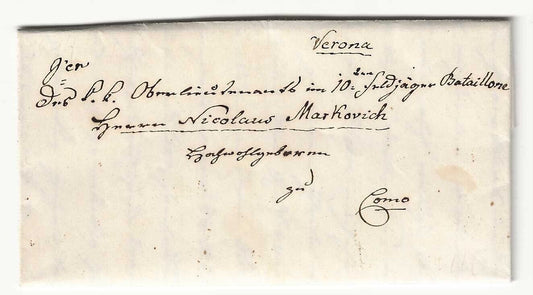 Verona
Des k. k. Oberlieutenants im 10. Feldjäger Bataillone
Herrn Nicolaus Markovich
Hochwohlgeboren
zu
Como